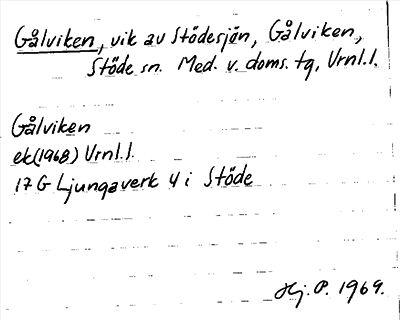 Gålviken, vik av Stödesjön, Gålviken,
Stöde sn. Med. v. doms. tg, Vrnl.l.
Gålviken
ek(1968) Vrnl.l.
17 G Ljungaverk 4 i Stöde
Hj. P. 1969.